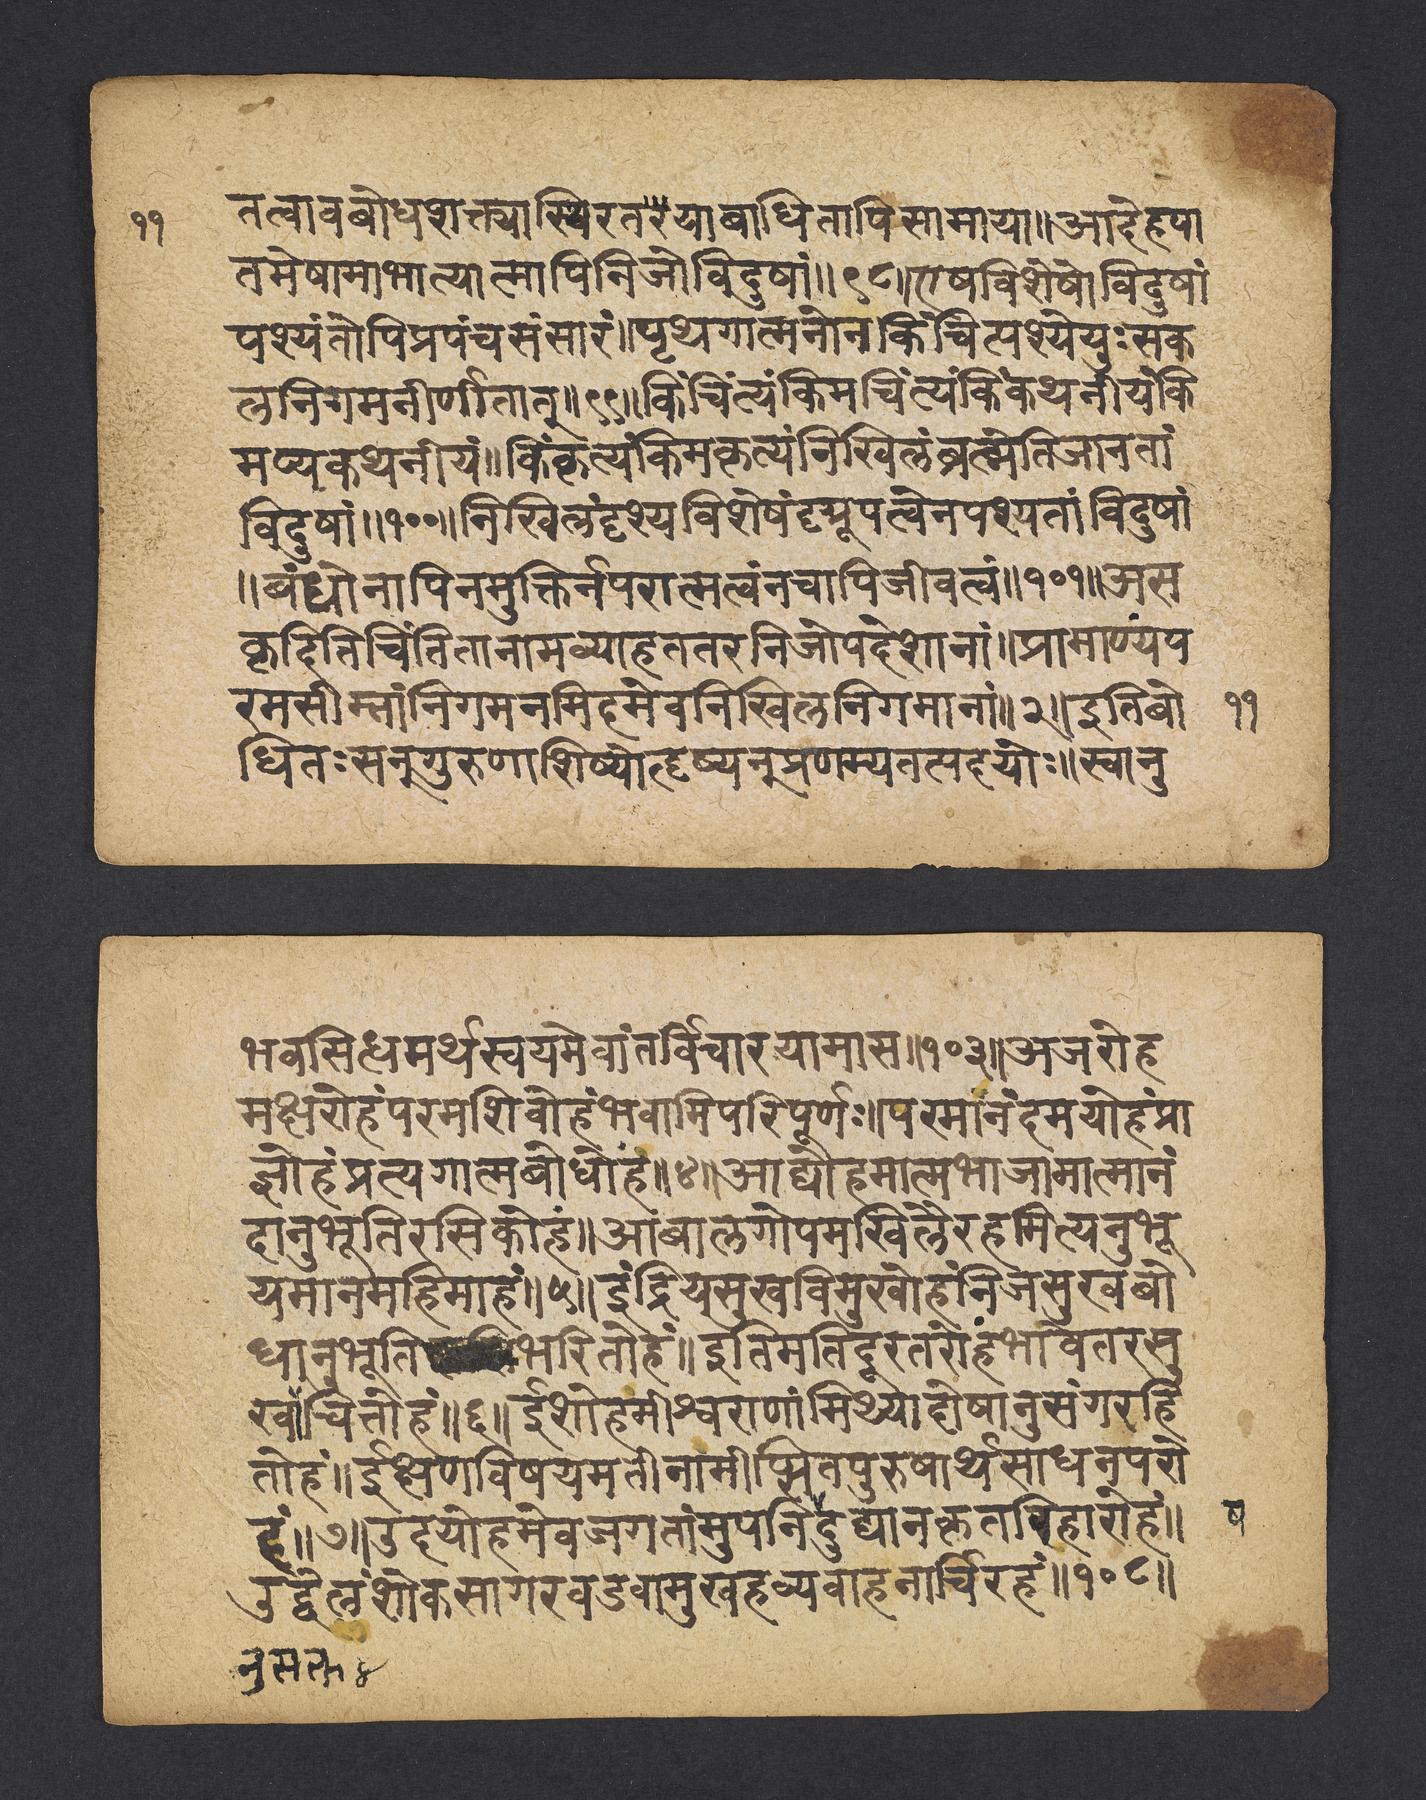 ११
तत्वावबोधशक्त्यास्थिरतरयाबाधितापिसामाया॥आदेहपा
तमेषामाभात्यात्मापिनिजोविदुषां॥९८॥एषविशेषोविदुषां
पश्यंतोपिप्रपंचसंसारं॥पृथगात्मनोनकिंचित्पश्येयुःसक
लनिगमनीर्णीतात्॥९९॥किंचिंत्यंकिमचिंत्यंकिंकथनीयंकि
मप्यकथनीयं॥किंकृत्यंकिमकृत्यंनिखिलंब्रह्मेतिजानतां
विदुषां॥१००॥निखिलंदृश्यविशेषंदृग्रूपत्वेनपश्यतांविदुषां
॥बंधोनापिनमुक्तिर्नपरात्मत्वंनचापिजीवत्वं॥१०१॥अस
कृदितिचिंतितानामव्याहततरनिजोपदेशानां॥प्रामाण्यंप
रमसीम्नांनिगमनमिदमेवनिखिलनिगमानां॥२॥इतिबो
११
धितःसन्गुरुणाशिष्योत्दृष्यन्प्रणम्यतत्पदयोः॥स्वानु
भवसिद्धमर्थंस्वयमेवांतर्विचारयामास॥१०३॥अजरोह
मक्षरोहंपरमशिवोहंभवामिपरिपूर्णः॥परमानंदमयोहंप्रा
ज्ञोहंप्रत्यगात्मबोधोहं॥४॥आद्योहमात्मभाजामात्मानं
दानुभूतिरसिकोहं॥आबालगोपमखिलैरहमित्यनुभू
यमानमहिमाहं॥५॥इंद्रियसुखविमुखोहंनिजसुखबो
धानुभूतिभरितोहं॥इतिमतिदूरतरोहंभावेतरसु
खचित्तोहं॥६॥ईशोहमीश्वराणांमिथ्यादोषानुसंगरहि
तोहं॥ईक्षणविषयमतीनामीप्सितपुरुषार्थसाधनपरो
हं॥७॥उदयोहमेवजगतांमुपनिदुद्यानकृतविहारोहं॥
ष
उद्वेलशोकसागरवडवामुखहव्यवाहनार्चिरहं॥१०८॥